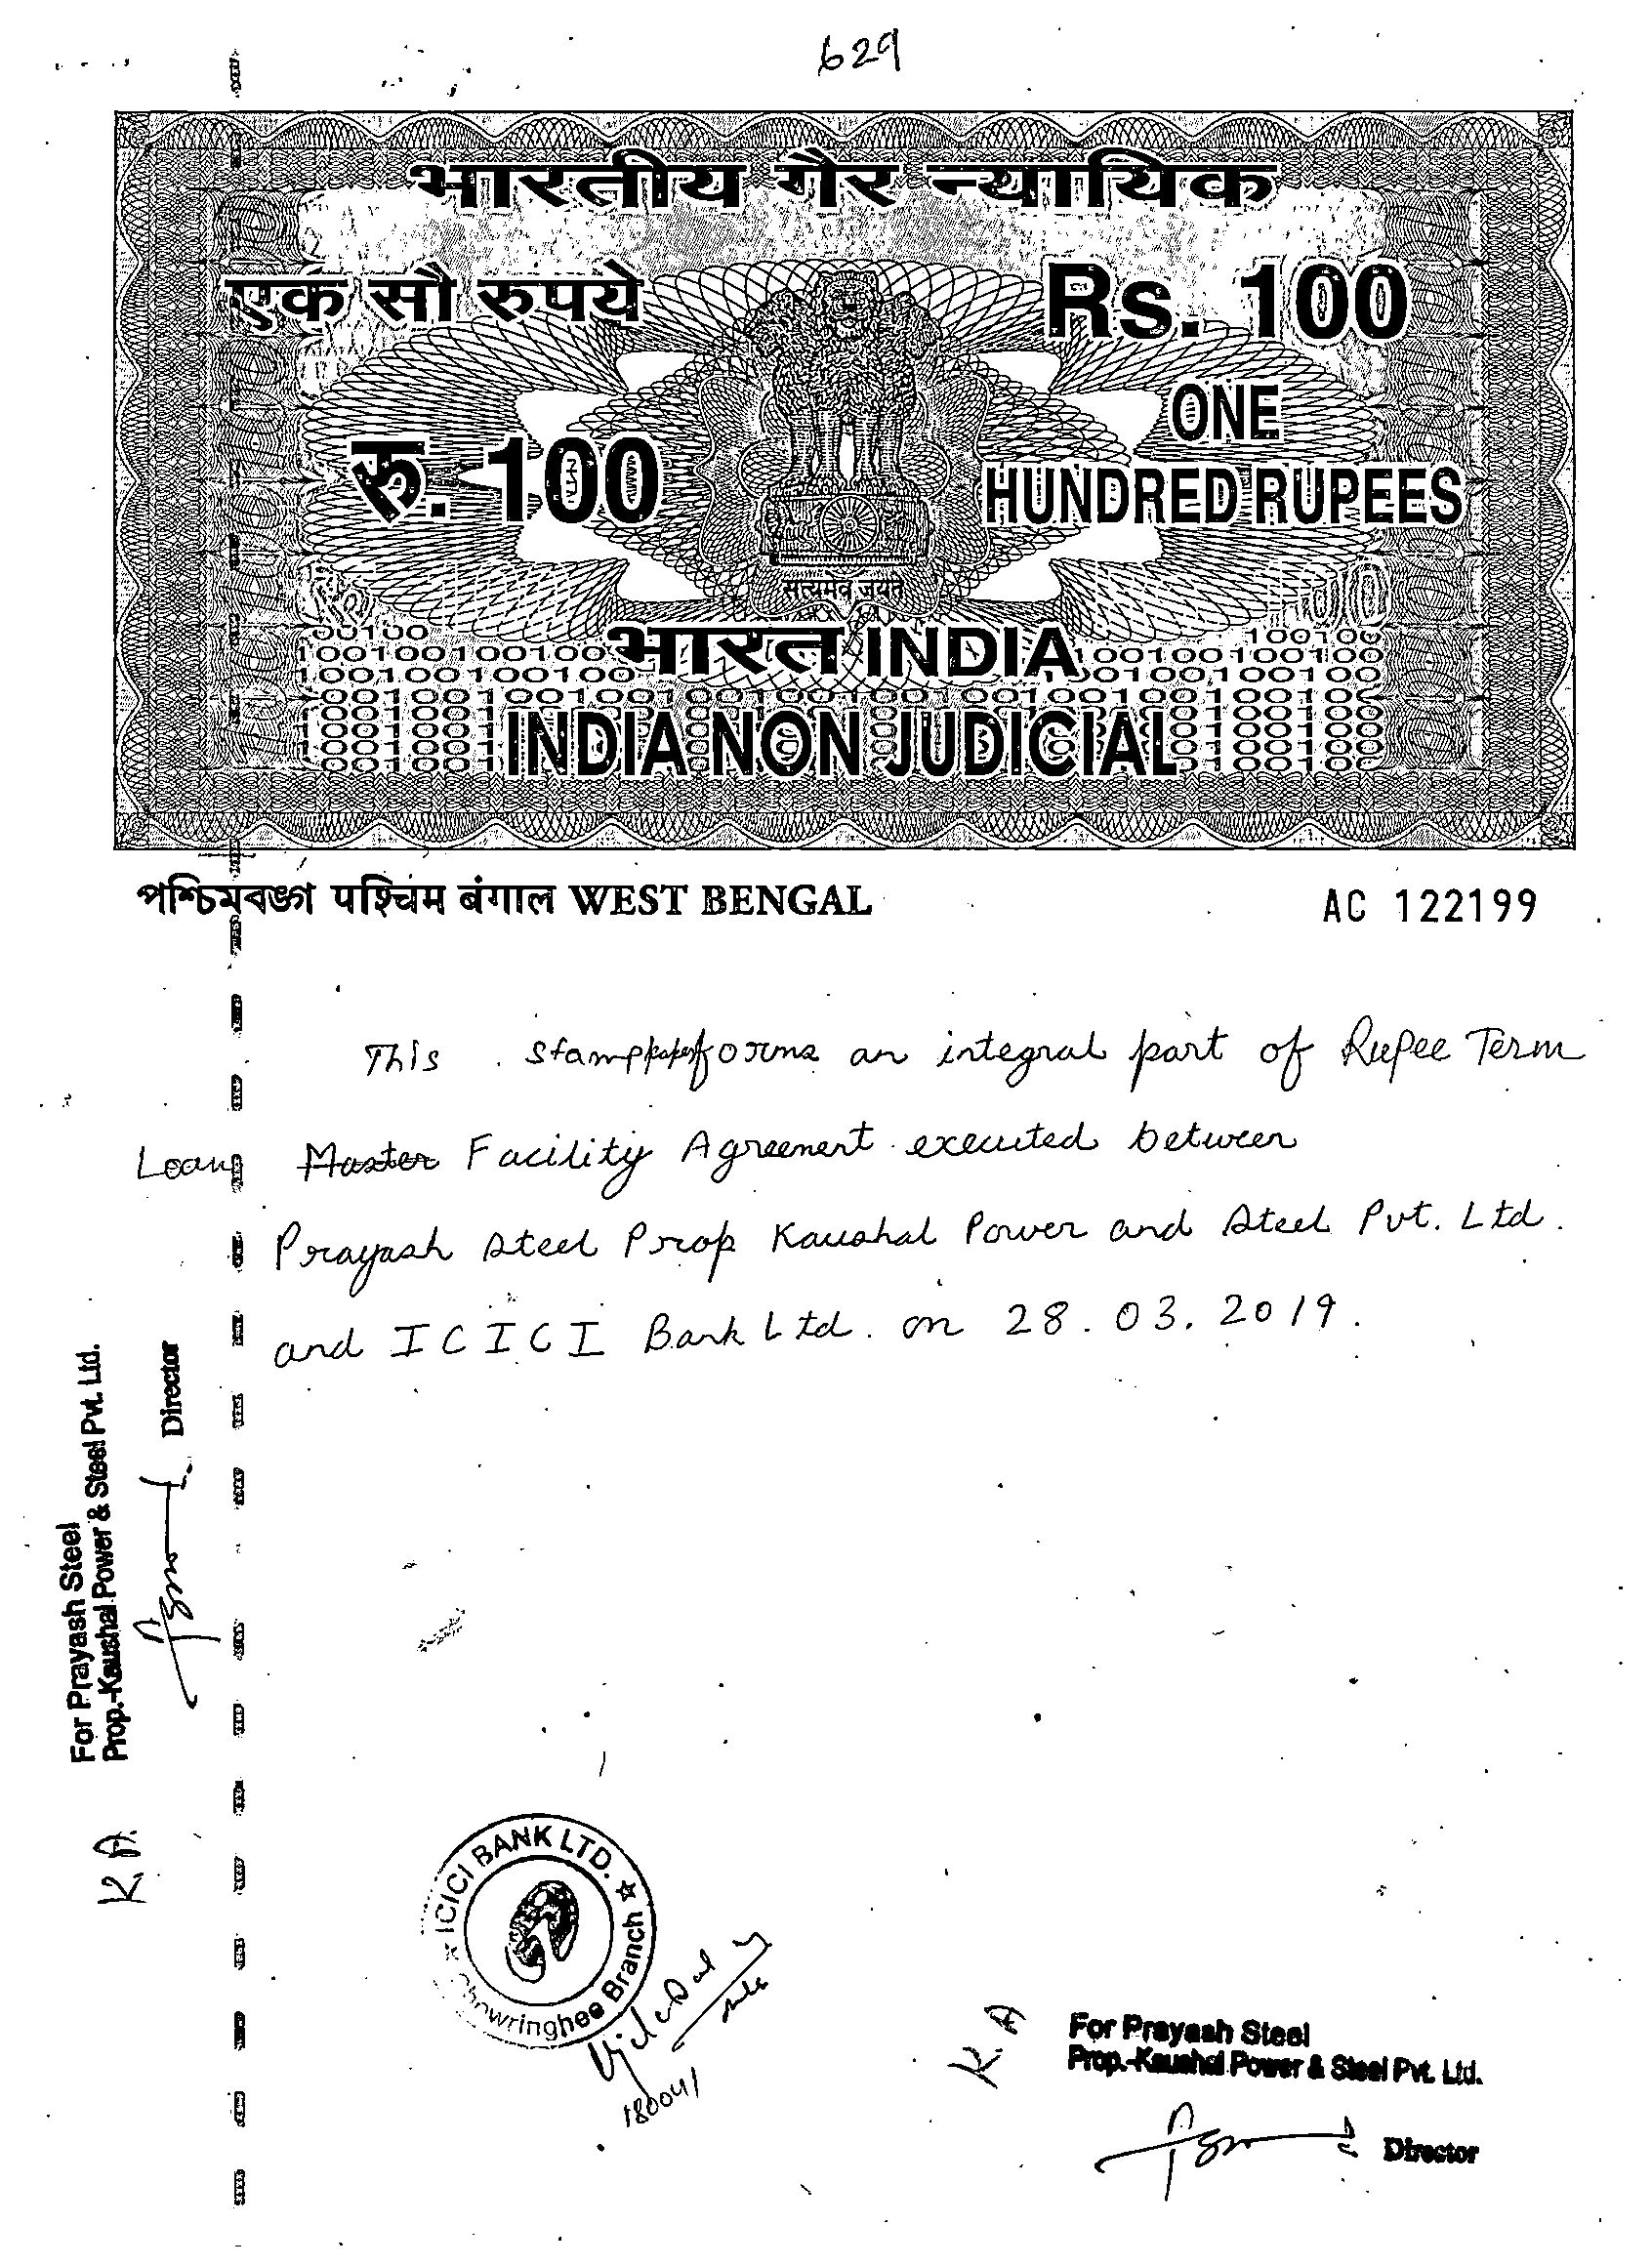 629
भारतीय गैर न्यायिक
एक सौ रुपये
Rs. 100
रु. 100
ONE
HUNDRED RUPEES
सत्यमेव जयते
भारत INDIA
INDIA NON JUDICIAL
পশ্চিমবঙ্গ पश्चिम बंगाल WEST BENGAL
AC 122199
This stamp paper forms an integral part of Rupee Term
Loan Master Facility Agreement executed between
Prayash Steel Prop Kaushal Power and Steel Pvt. Ltd.
and ICICI Bank Ltd. on 28.03.2019.
For Prayash Steel
Prop.-Kaushal Power & Steel Pvt. Ltd.
Director
K.A.
ICICI BANK LTD.
Chowringhee Branch
180041
K.A
For Prayash Steel
Prop.-Kaushal Power & Steel Pvt. Ltd.
Director